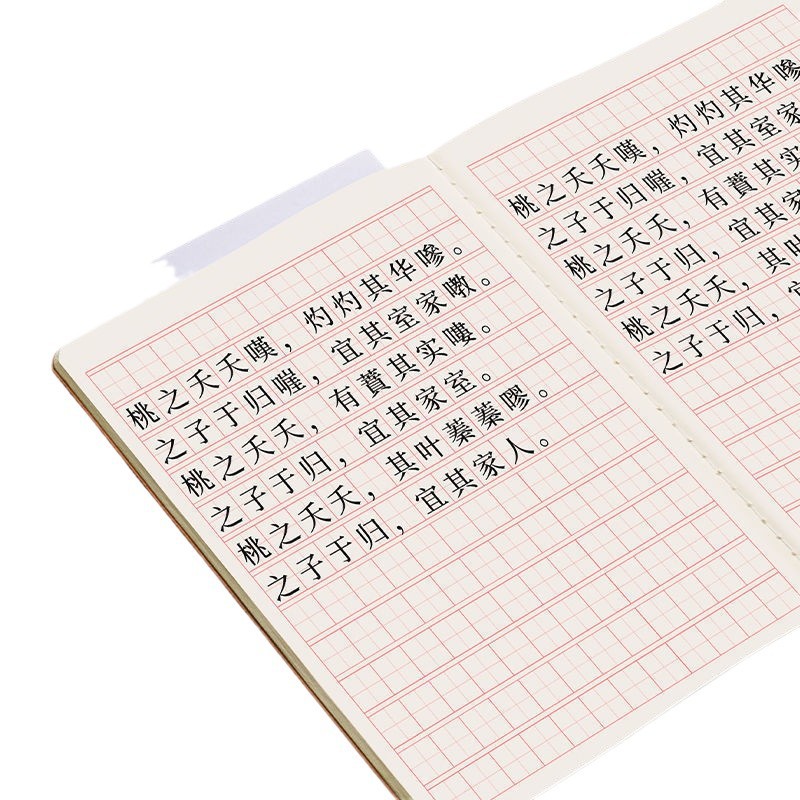 桃之夭夭嘆，灼灼其华嘇。
之子于归嘊，宜其室家嗷。
桃之夭夭，有蕡其实嘍。
之子于归，宜其家室。
桃之夭夭，其叶蓁蓁嘐。
之子于归，宜其家人。
桃之夭夭嘆，灼灼其华嘇
之子于归嘊，宜其室家
桃之夭夭，有蕡其实
之子于归，宜其家
桃之夭夭，其叶
之子于归，宜